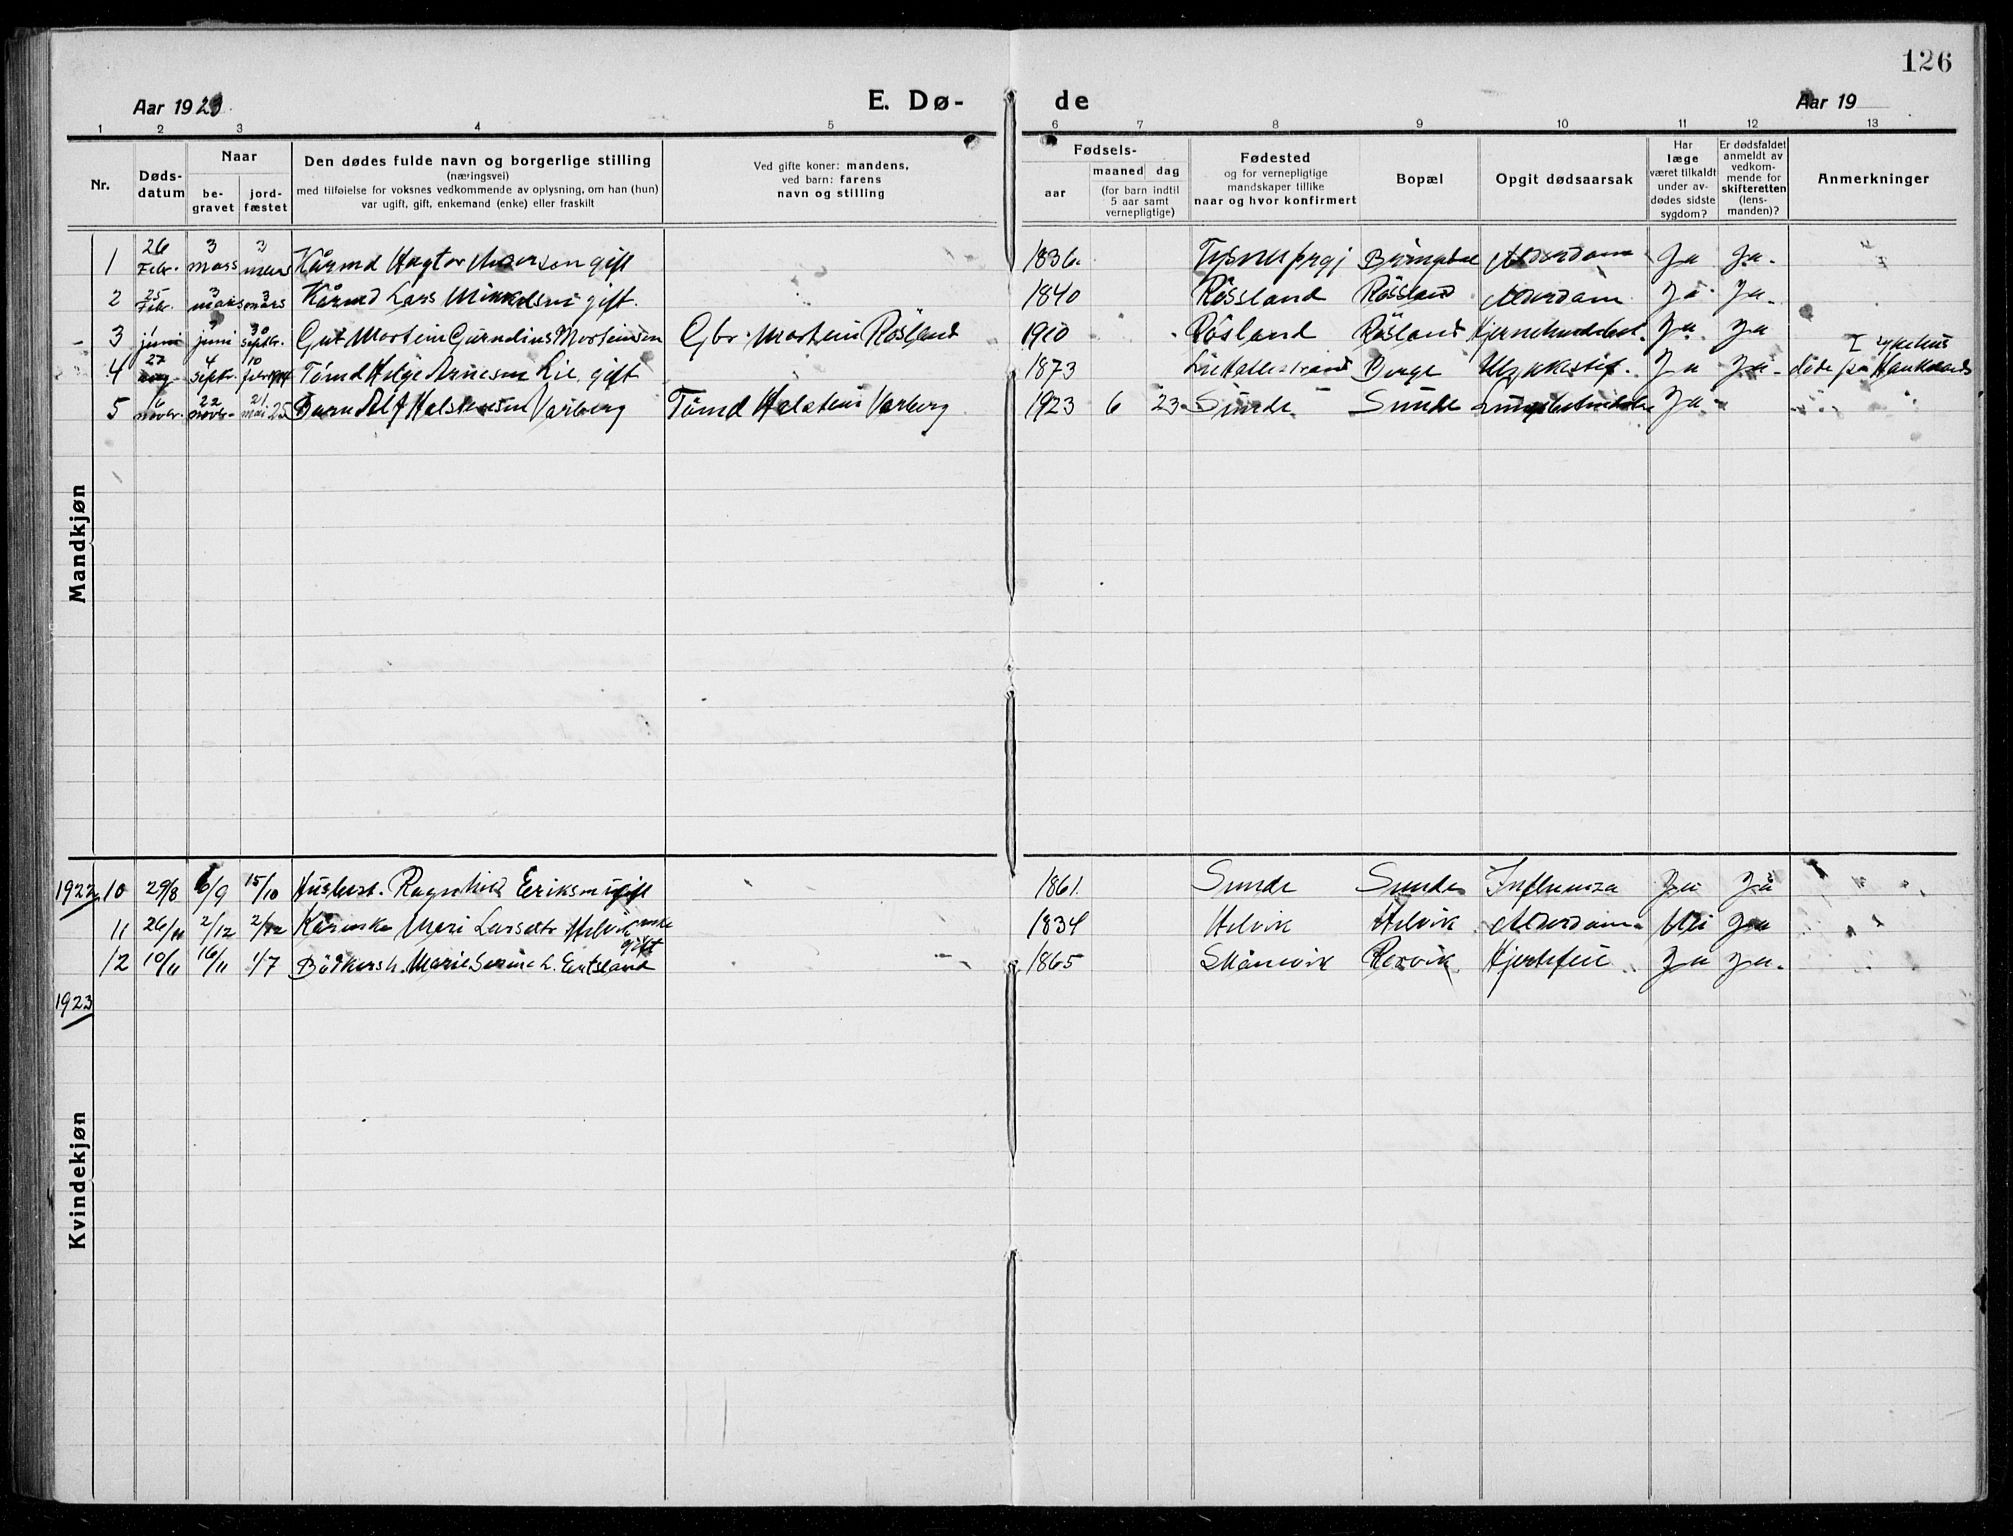 126
Aar 1923 E. Dø- de Aar 19
1 2 3 4 5 6 7 8 9 10 11 12 13
Nr. Døds-datum Naar be-gravet jord-fæstet Den dødes fulde navn og borgerlige stilling (næringsvei) med tilføielse for voksnes vedkommende av oplysning, om han (hun) var ugift, gift, enkemand (enke) eller fraskilt Ved gifte koner: mandens, ved barn: farens navn og stilling Fødsels- aar maaned dag (for barn indtil 5 aar samt vernepligtige) Fødested og for vernepligtige mandskaper tillike naar og hvor konfirmert Bopæl Opgit dødsaarsak Har læge været tilkaldt under av-dødes sidste sygdom? Er dødsfaldet anmeldt av vedkom-mende for skifteretten (lens-manden)? Anmerkninger
Mandkjøn
1 26 Febr. 3 mars 3 mars Kårmd gift 1836. Alderdom Ja Ja.
2 25 Febr. 3 mars 3 mars Kårmd Lars Mikkelsen gift. 1840 Røssland Røssland Alderdom Ja Ja.
3 1 juni 7 juni 30 septbr. Gut Mortein Morteinsen Gbr. Mortein Røsland 1910 Røsland Røsland Ja. Ja
4 27 aug. 4 septr. 10 Tømd Helge Arnesen Lie. gift 1873 Berge Ja Ja. I sykehus døde på
5 16 novbr. 22 novbr. 21 mai 25 Barn Alf Halstensen Varberg Tømd Halstein Varberg 1923 6 23 Sunde Sunde Ja
Kvindekjøn
1922 10 29/8 6/9 15/10 Ragnhild Eriksen ugift 1861. Sunde Sunde Influenza Ja Ja
11 26/11 2/12 2/12 Kårenke Mari Larsdtr Helvik enke 1834 Helvik Helvik Alderdom Nei Ja
12 10/11 16/11 1/7 Bødkersh. Marie Serine L. gift 1865 Skånevik Hjertefeil Ja Ja.
1923